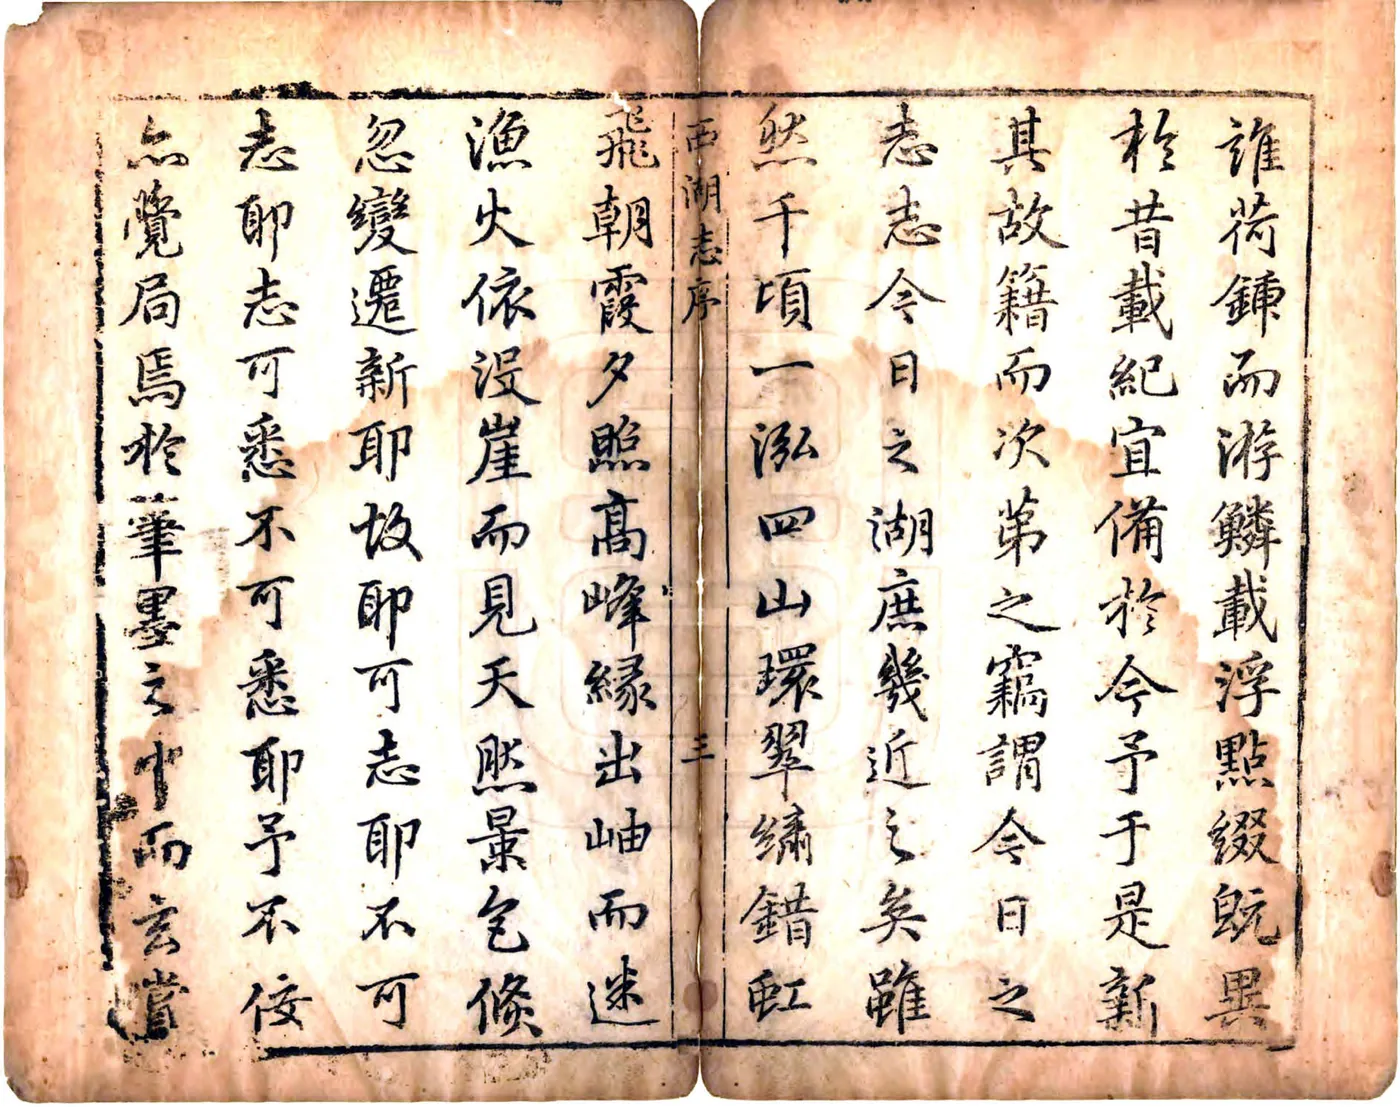 誰荷鍤而游鱗載浮點綴旣異
於昔載紀宜備於今予于是新
其故籍而次苐之竊謂今日之
志志今日之湖庶幾近之矣雖
然千頃一泓四山環翠繡錯虹
西湖志序 三
飛朝霞夕照高峰緣出岫而迷
漁火依沒崖而見天然景色倐
忽變遷新耶故耶可志耶不可
志耶志可悉不可悉耶予不佞
亦覺局焉於筆墨之中而玄賞